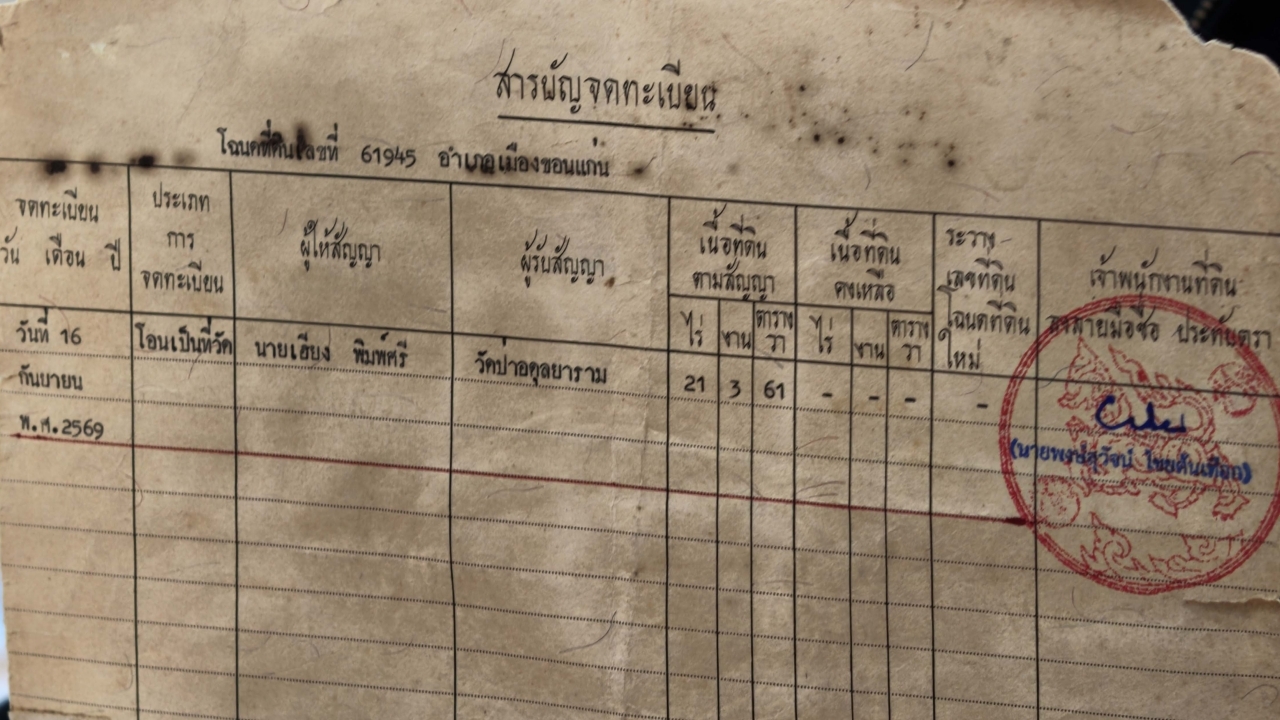 สารบัญจดทะเบียน
โฉนดที่ดินเลขที่ 61945 อำเภอเมืองขอนแก่น
จดทะเบียน
วัน เดือน ปี
ประเภท
การ
จดทะเบียน
ผู้ให้สัญญา
ผู้รับสัญญา
เนื้อที่ดิน
ตามสัญญา
ไร่ งาน ตาราง
วา
เนื้อที่ดิน
คงเหลือ
ไร่ งาน ตาราง
วา
ระวาง
เลขที่ดิน
โฉนดที่ดิน
ใหม่
เจ้าพนักงานที่ดิน
ลงลายมือชื่อ ประทับตรา
วันที่ 16 โอนเป็นที่วัด นายเฮียง พิมพ์ศรี วัดป่าอดุลยาราม 21 3 61 - - - -
กันยายน
พ.ศ.2569